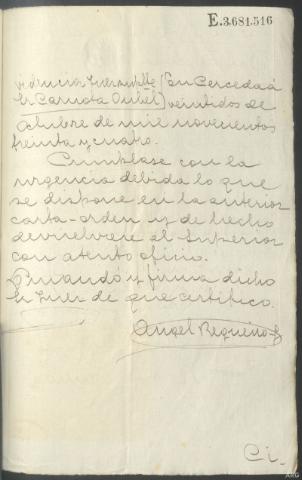 E.3.681.516
videncia Juez (En Cerceda á
veintidos de
Octubre de mil novecientos
treinta y cuatro.
Cumplase con la
urgencia debida lo que
se dispone en la anterior
carta-orden y de hecho
devuelvase al Superior
con atento oficio.
Lo mandó y firma dicho
Sr Juez de que certifico.
Angel Regueiro
Ci.
ARG